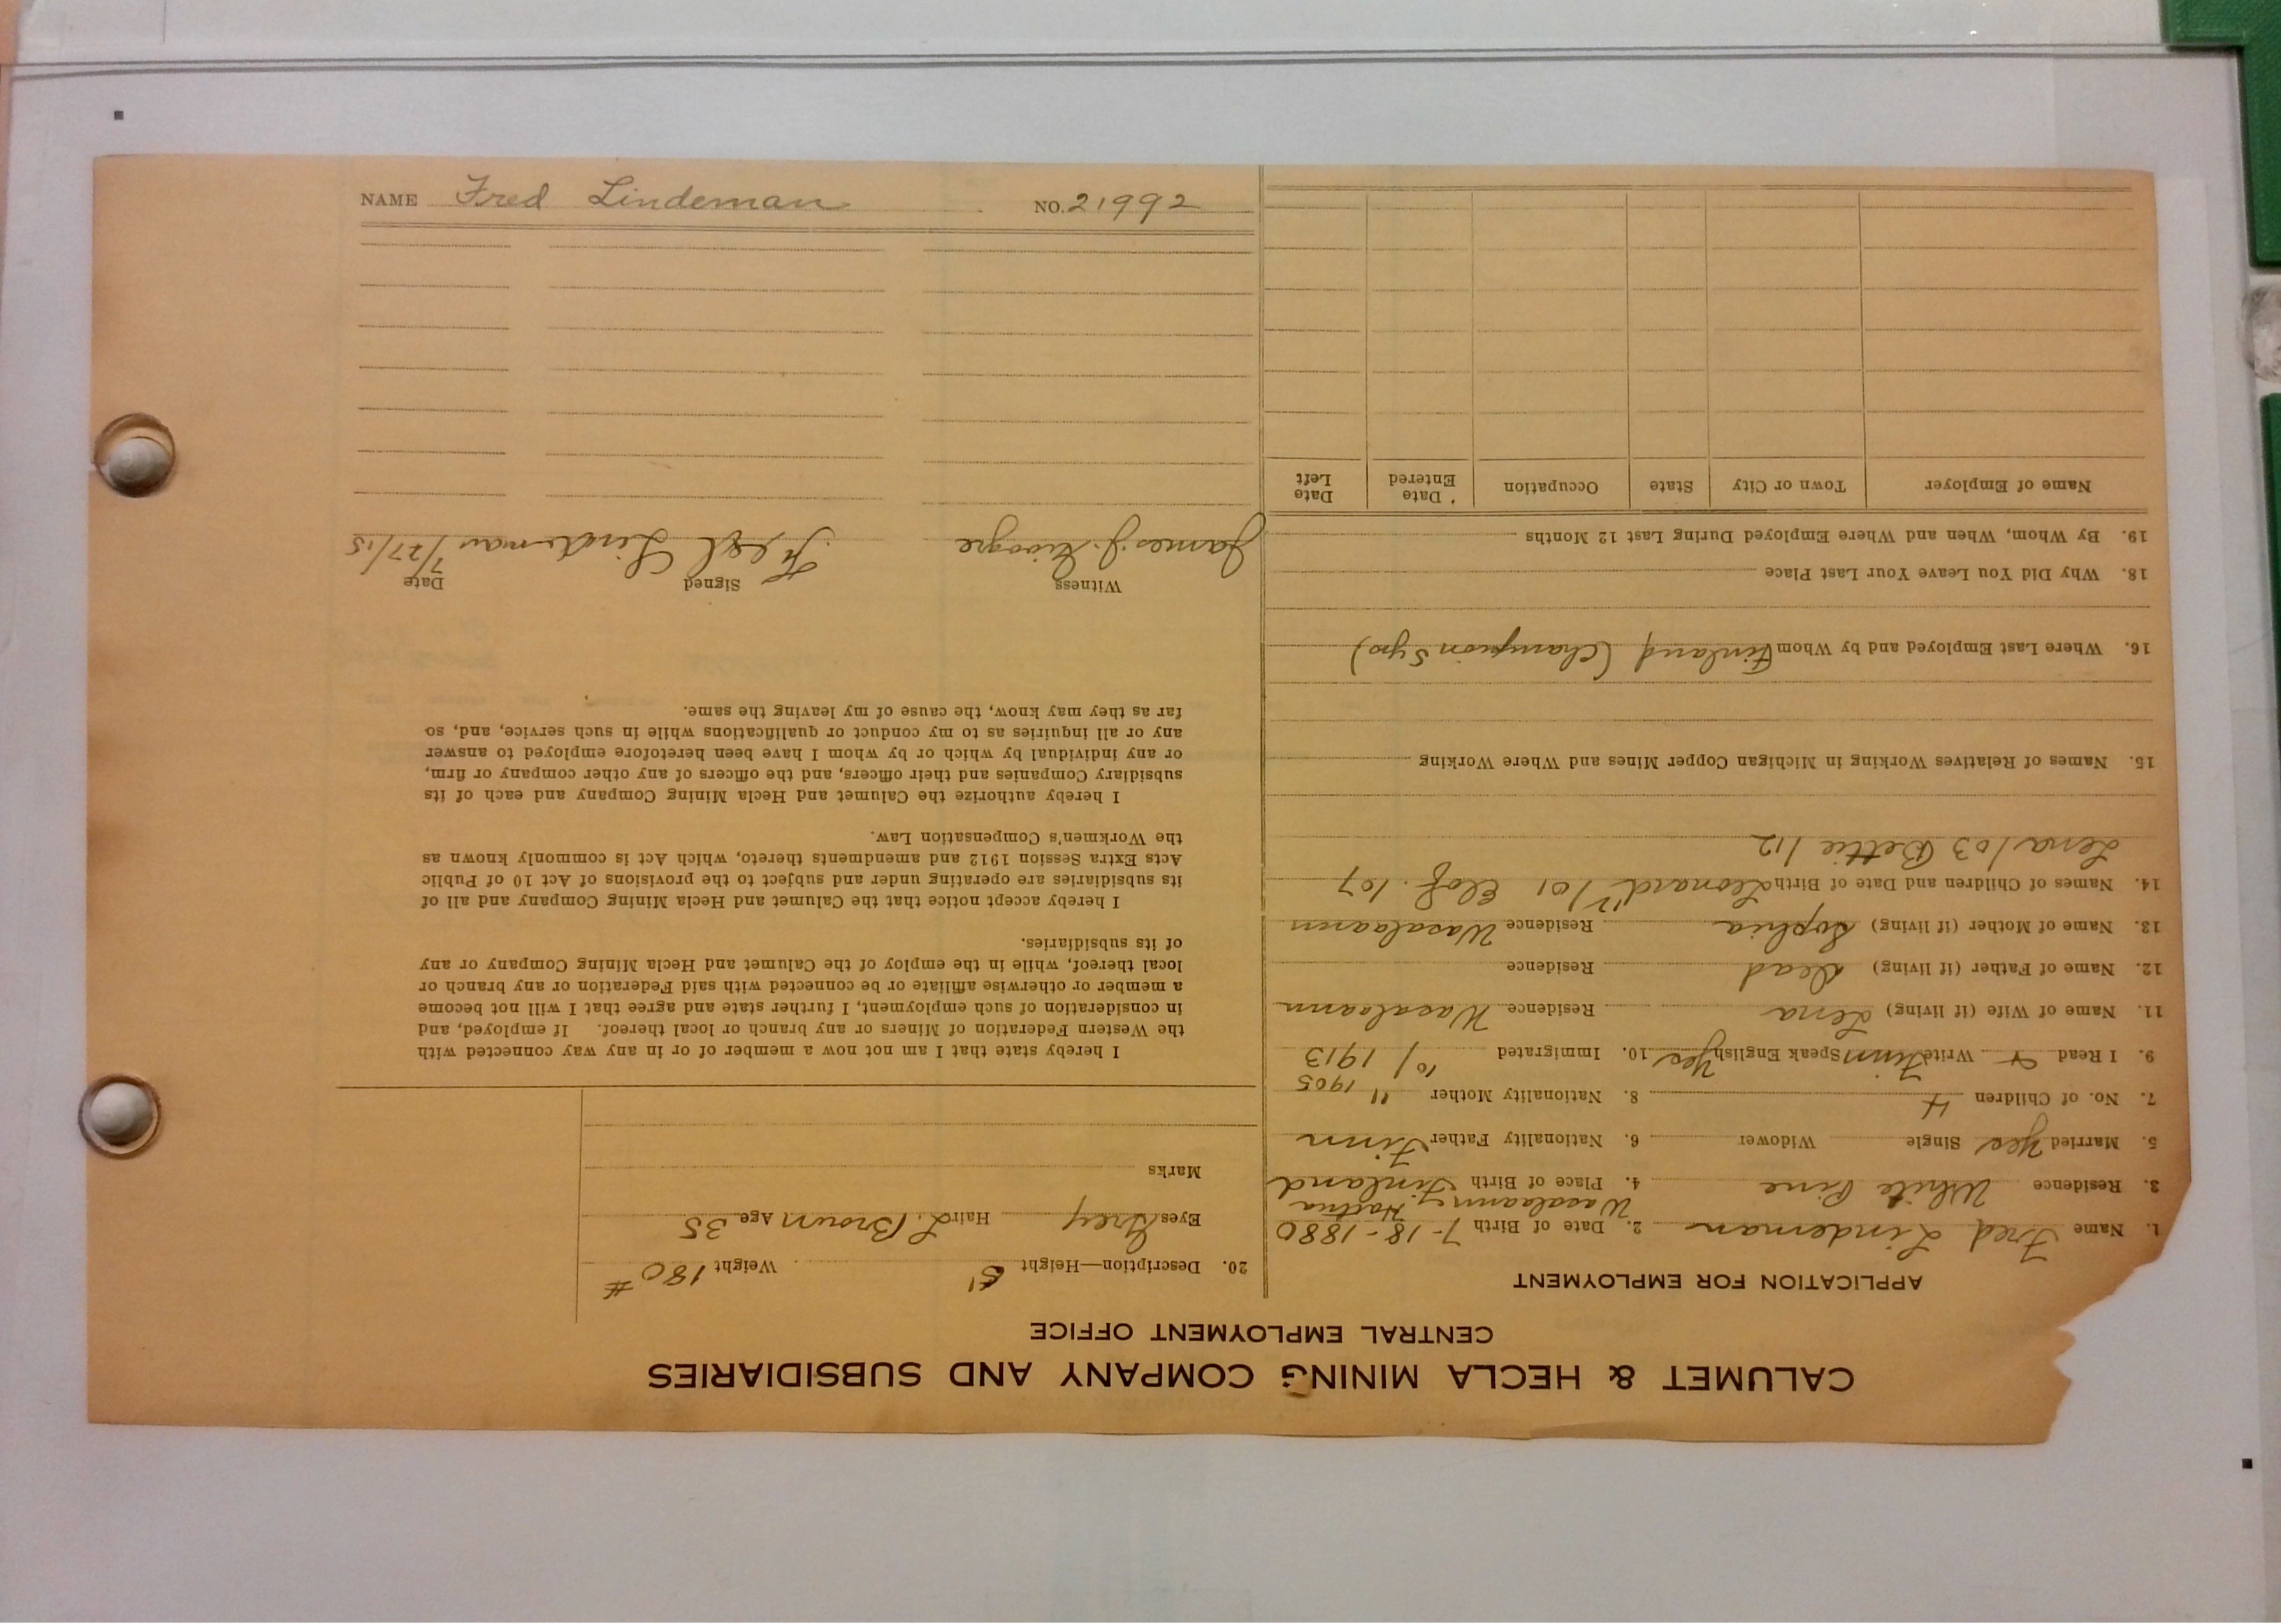 CALUMET & HECLA MINING COMPANY AND SUBSIDIARIES
CENTRAL EMPLOYMENT OFFICE
APPLICATION FOR EMPLOYMENT
1. Name Fred Lindeman 2. Date of Birth 7-18-1880
3. Residence White Pine 4. Place of Birth Finland
5. Married Yes Single Widower 6. Nationality Father Finn
7. No. of Children 4 8. Nationality Mother "
1905
9. I Read Write Finn Speak English Yes 10. Immigrated 10/1913
11. Name of Wife (if living) Lena Residence Wasalaann
12. Name of Father (if living) Dead Residence
13. Name of Mother (if living) Sophia Residence Wasalaann
14. Names of Children and Date of Birth Leonard 1/01 Elof 1/07
Lena 1/03 Bettie 1/12
15. Names of Relatives Working in Michigan Copper Mines and Where Working
16. Where Last Employed and by Whom Finland (Champion 5 yrs)
18. Why Did You Leave Your Last Place
19. By Whom, When and Where Employed During Last 12 Months
Name of Employer Town or City State Occupation Date Entered Date Left
20. Description—Height Weight 180 #
Eyes Grey Hair L. Brown Age 35
Marks
I hereby state that I am not now a member of or in any way connected with
the Western Federation of Miners or any branch or local thereof. If employed, and
in consideration of such employment, I further state and agree that I will not become
a member or otherwise affiliate or be connected with said Federation or any branch or
local thereof, while in the employ of the Calumet and Hecla Mining Company or any
of its subsidiaries.
I hereby accept notice that the Calumet and Hecla Mining Company and all of
its subsidiaries are operating under and subject to the provisions of Act 10 of Public
Acts Extra Session 1912 and amendments thereto, which Act is commonly known as
the Workmen's Compensation Law.
I hereby authorize the Calumet and Hecla Mining Company and each of its
subsidiary Companies and their officers, and the officers of any other company or firm,
or any individual by which or by whom I have been heretofore employed to answer
any or all inquiries as to my conduct or qualifications while in such service, and, so
far as they may know, the cause of my leaving the same.
Witness Signed Date
James J. Fred Lindeman 7/27/15
NAME Fred Lindeman NO. 21992